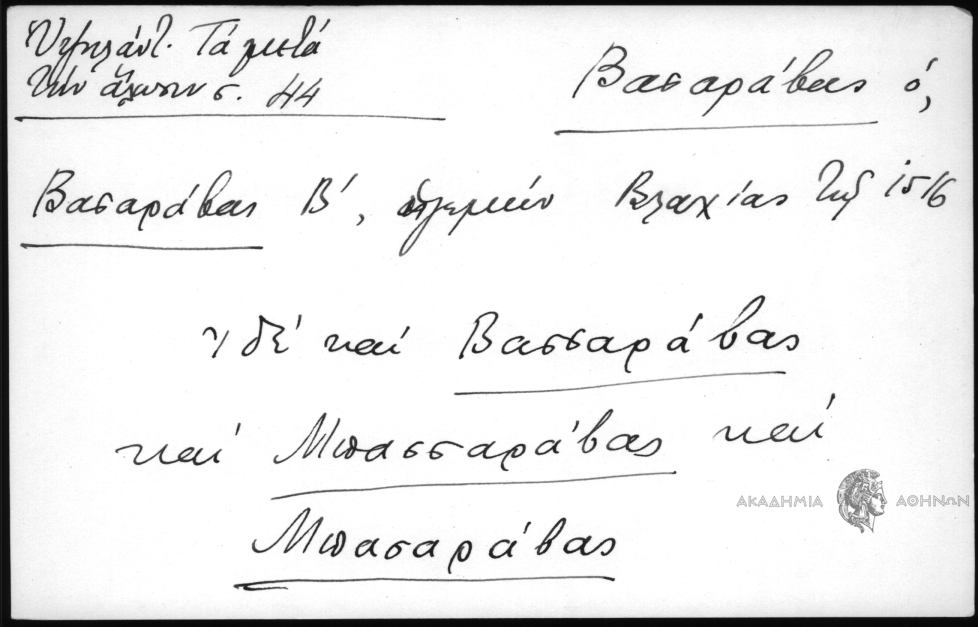 Ὑψηλάντ. Τά μετά
τήν ἅλωσιν σ. 44
Βασαράβας ὁ,
Βασαράβας Β', ἡγεμών Βλαχίας τῷ 1516
ἰδέ καί Βασσαράβας
καί Μπασσαράβας καί
Μπασαράβας
ΑΚΑΔΗΜΙΑ ΑΘΗΝΩΝ